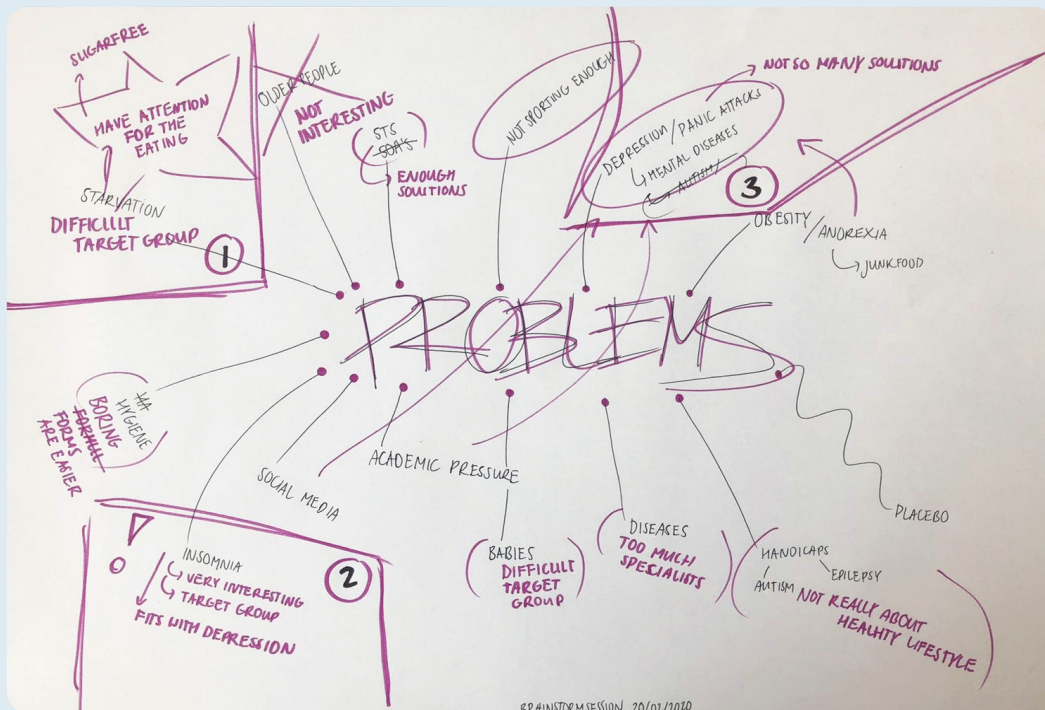 SUGARFREE
HAVE ATTENTION
FOR THE
EATING
STARVATION
DIFFICULT
TARGET GROUP
1
OLDER PEOPLE
NOT
INTERESTING
STS
SOA'S
ENOUGH
SOLUTIONS
NOT SPORTING ENOUGH
NOT SO MANY SOLUTIONS
DEPRESSION/PANIC ATTACKS
MENTAL DISEASES
AUTISM/
3
OBESITY
/ANOREXIA
JUNKFOOD
PROBLEMS
HYGIENE
BORING
FORMS
ARE EASIER
SOCIAL MEDIA
ACADEMIC PRESSURE
INSOMNIA
VERY INTERESTING
TARGET GROUP
FITS WITH DEPRESSION
2
BABIES
DIFFICULT
TARGET
GROUP
DISEASES
TOO MUCH
SPECIALISTS
HANDICAPS
EPILEPSY
AUTISM
NOT REALLY ABOUT
HEALHTY LIFESTYLE
PLACEBO
BRAINSTORMSESSION 20/02/2020